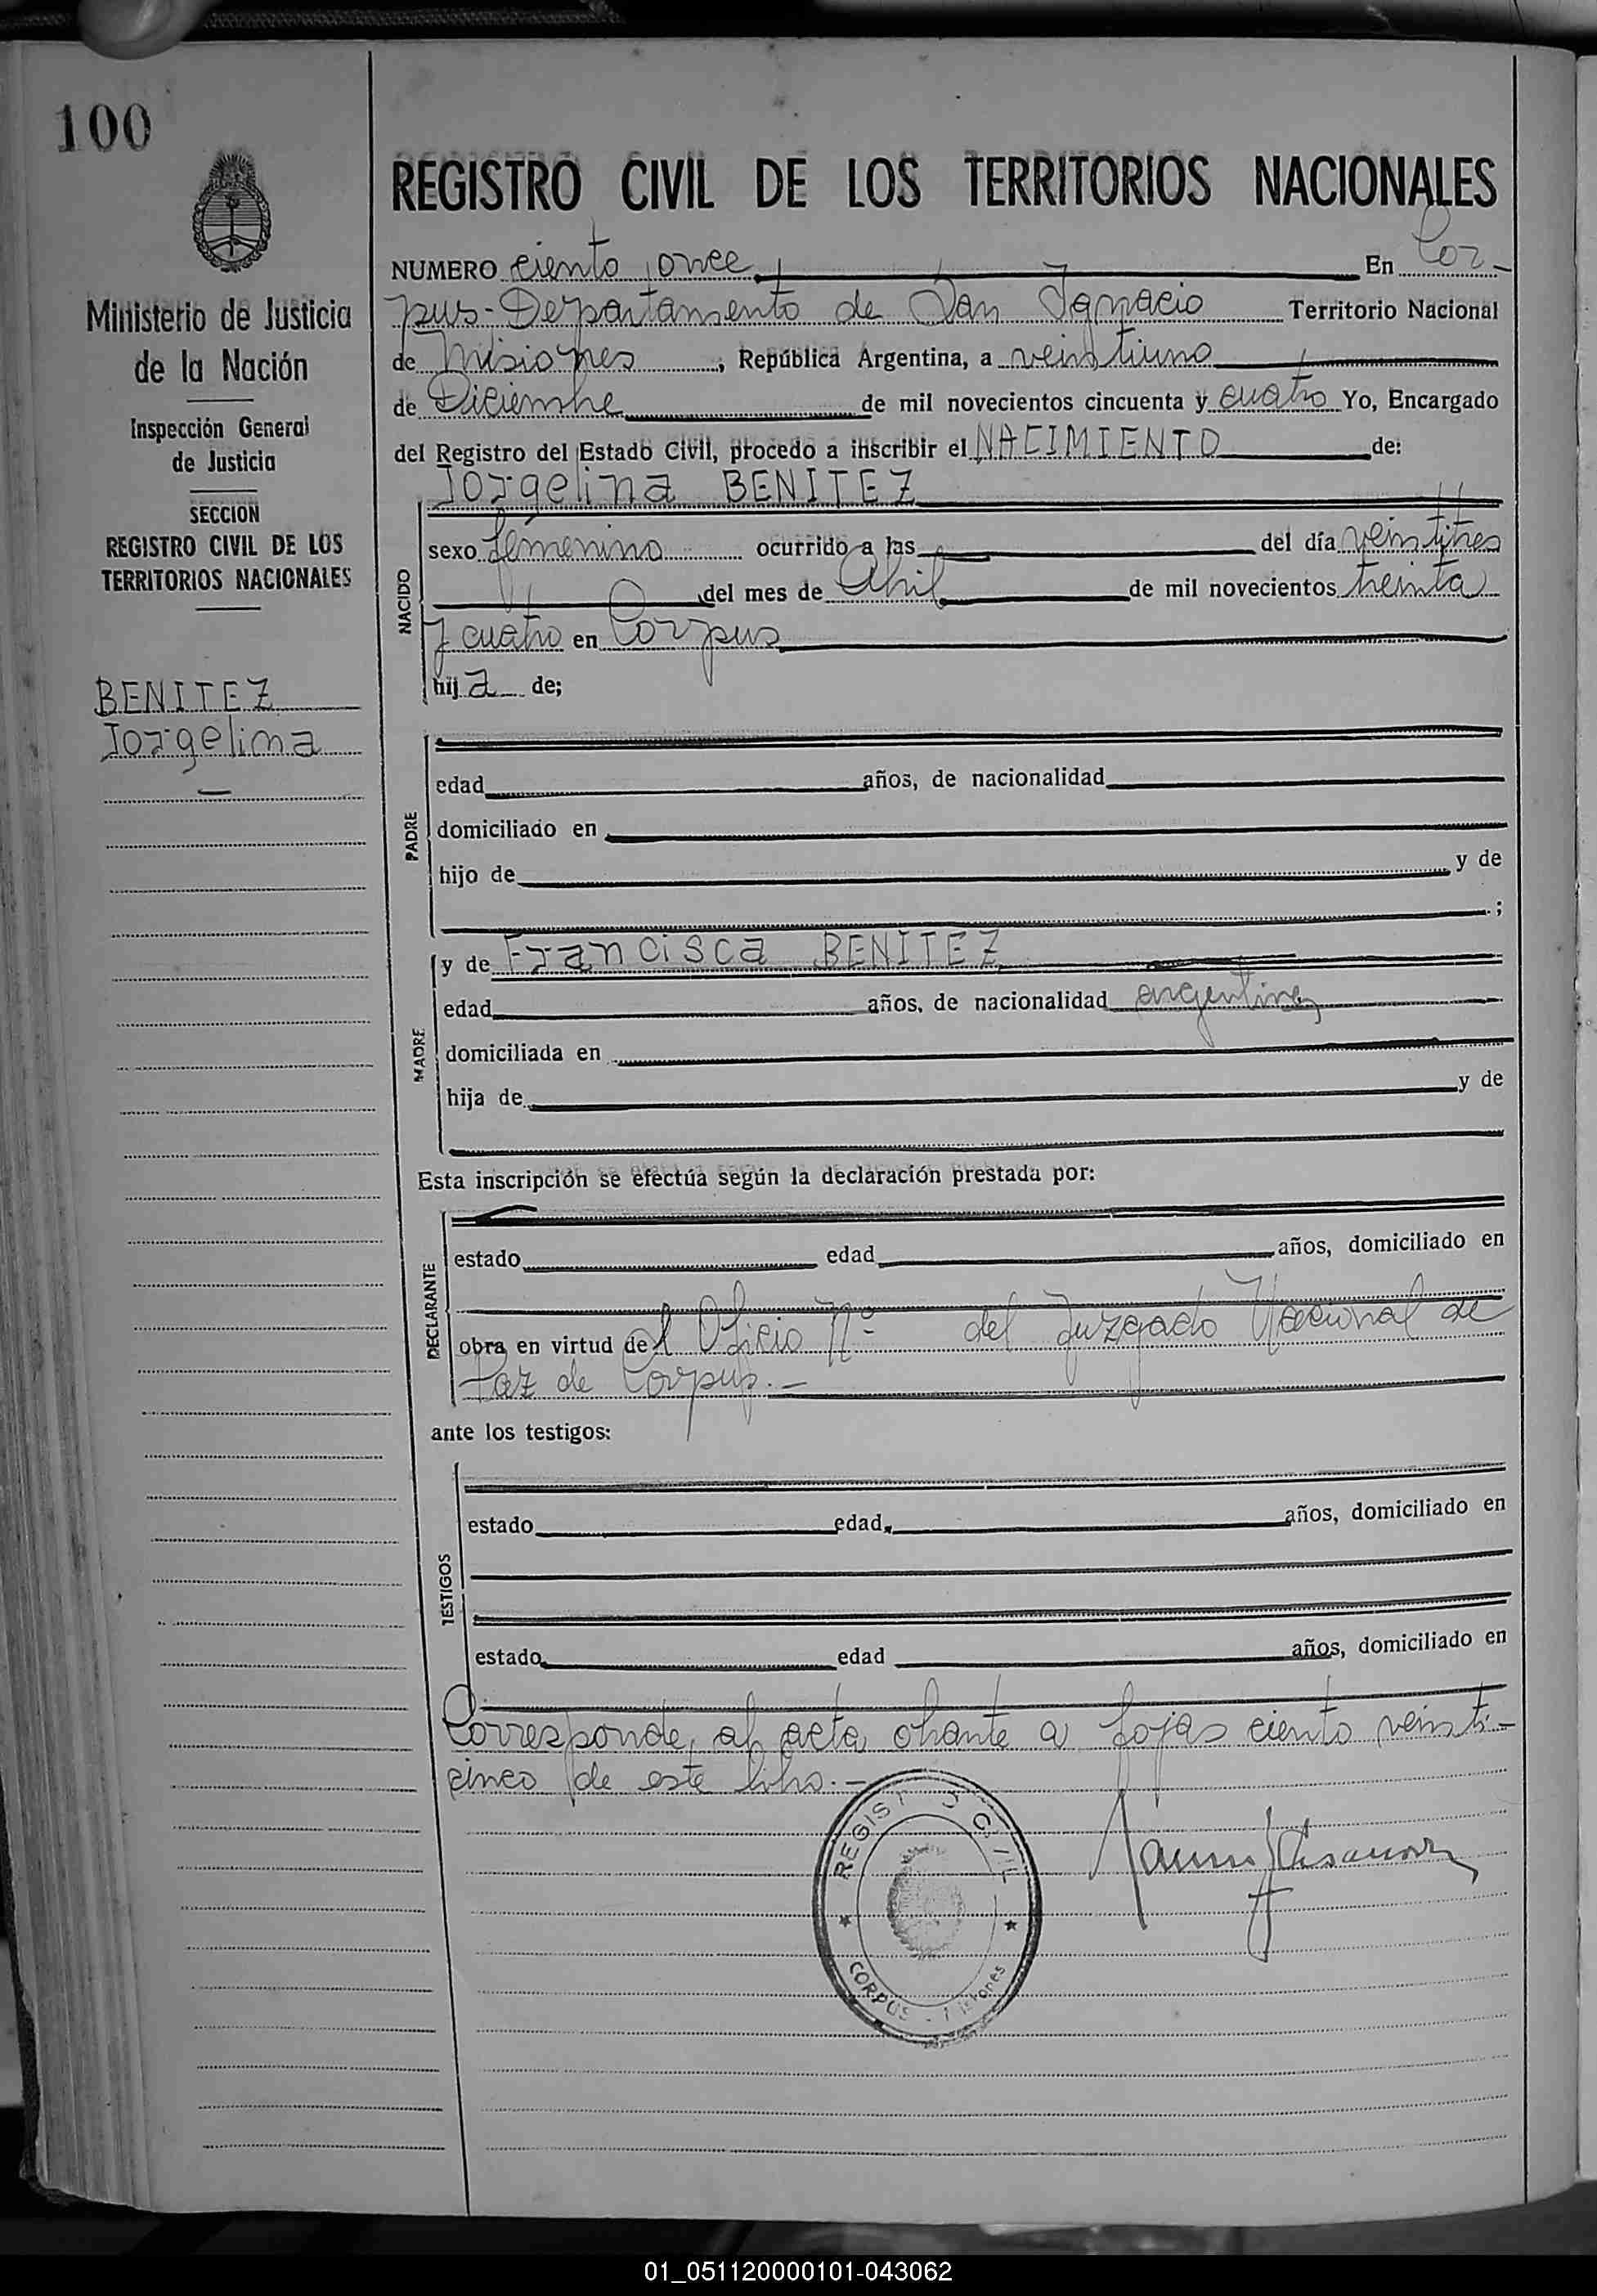 100
Ministerio de Justicia
de la Nación
Inspección General
de Justicia
SECCION
REGISTRO CIVIL DE LOS
TERRITORIOS NACIONALES
BENITEZ
Jorgelina
REGISTRO CIVIL DE LOS TERRITORIOS NACIONALES
NUMERO ciento once En Cor-
pus-Departamento de San Ignacio Territorio Nacional
de Misiones, República Argentina, a veintiuno
de Diciembre de mil novecientos cincuenta y cuatro Yo, Encargado
del Registro del Estado Civil, procedo a inscribir el NACIMIENTO de:
Jorgelina BENITEZ
NACIDO
sexo femenino ocurrido a las del día veintitres
del mes de Abril de mil novecientos treinta
y cuatro en Corpus
hija de;
PADRE
edad años, de nacionalidad
domiciliado en
hijo de y de
;
MADRE
y de Francisca BENITEZ
edad años, de nacionalidad argentina
domiciliada en
hija de y de
Esta inscripción se efectúa según la declaración prestada por:
DECLARANTE
estado edad años, domiciliado en
obra en virtud del Oficio Nº del Juzgado Nacional de
Paz de Corpus.-
ante los testigos:
TESTIGOS
estado edad años, domiciliado en
estado edad años, domiciliado en
Corresponde al acta obrante a fojas ciento veinti-
cinco de este libro.-
REGIST CIVIL
CORPUS - Misiones
01_051120000101-043062